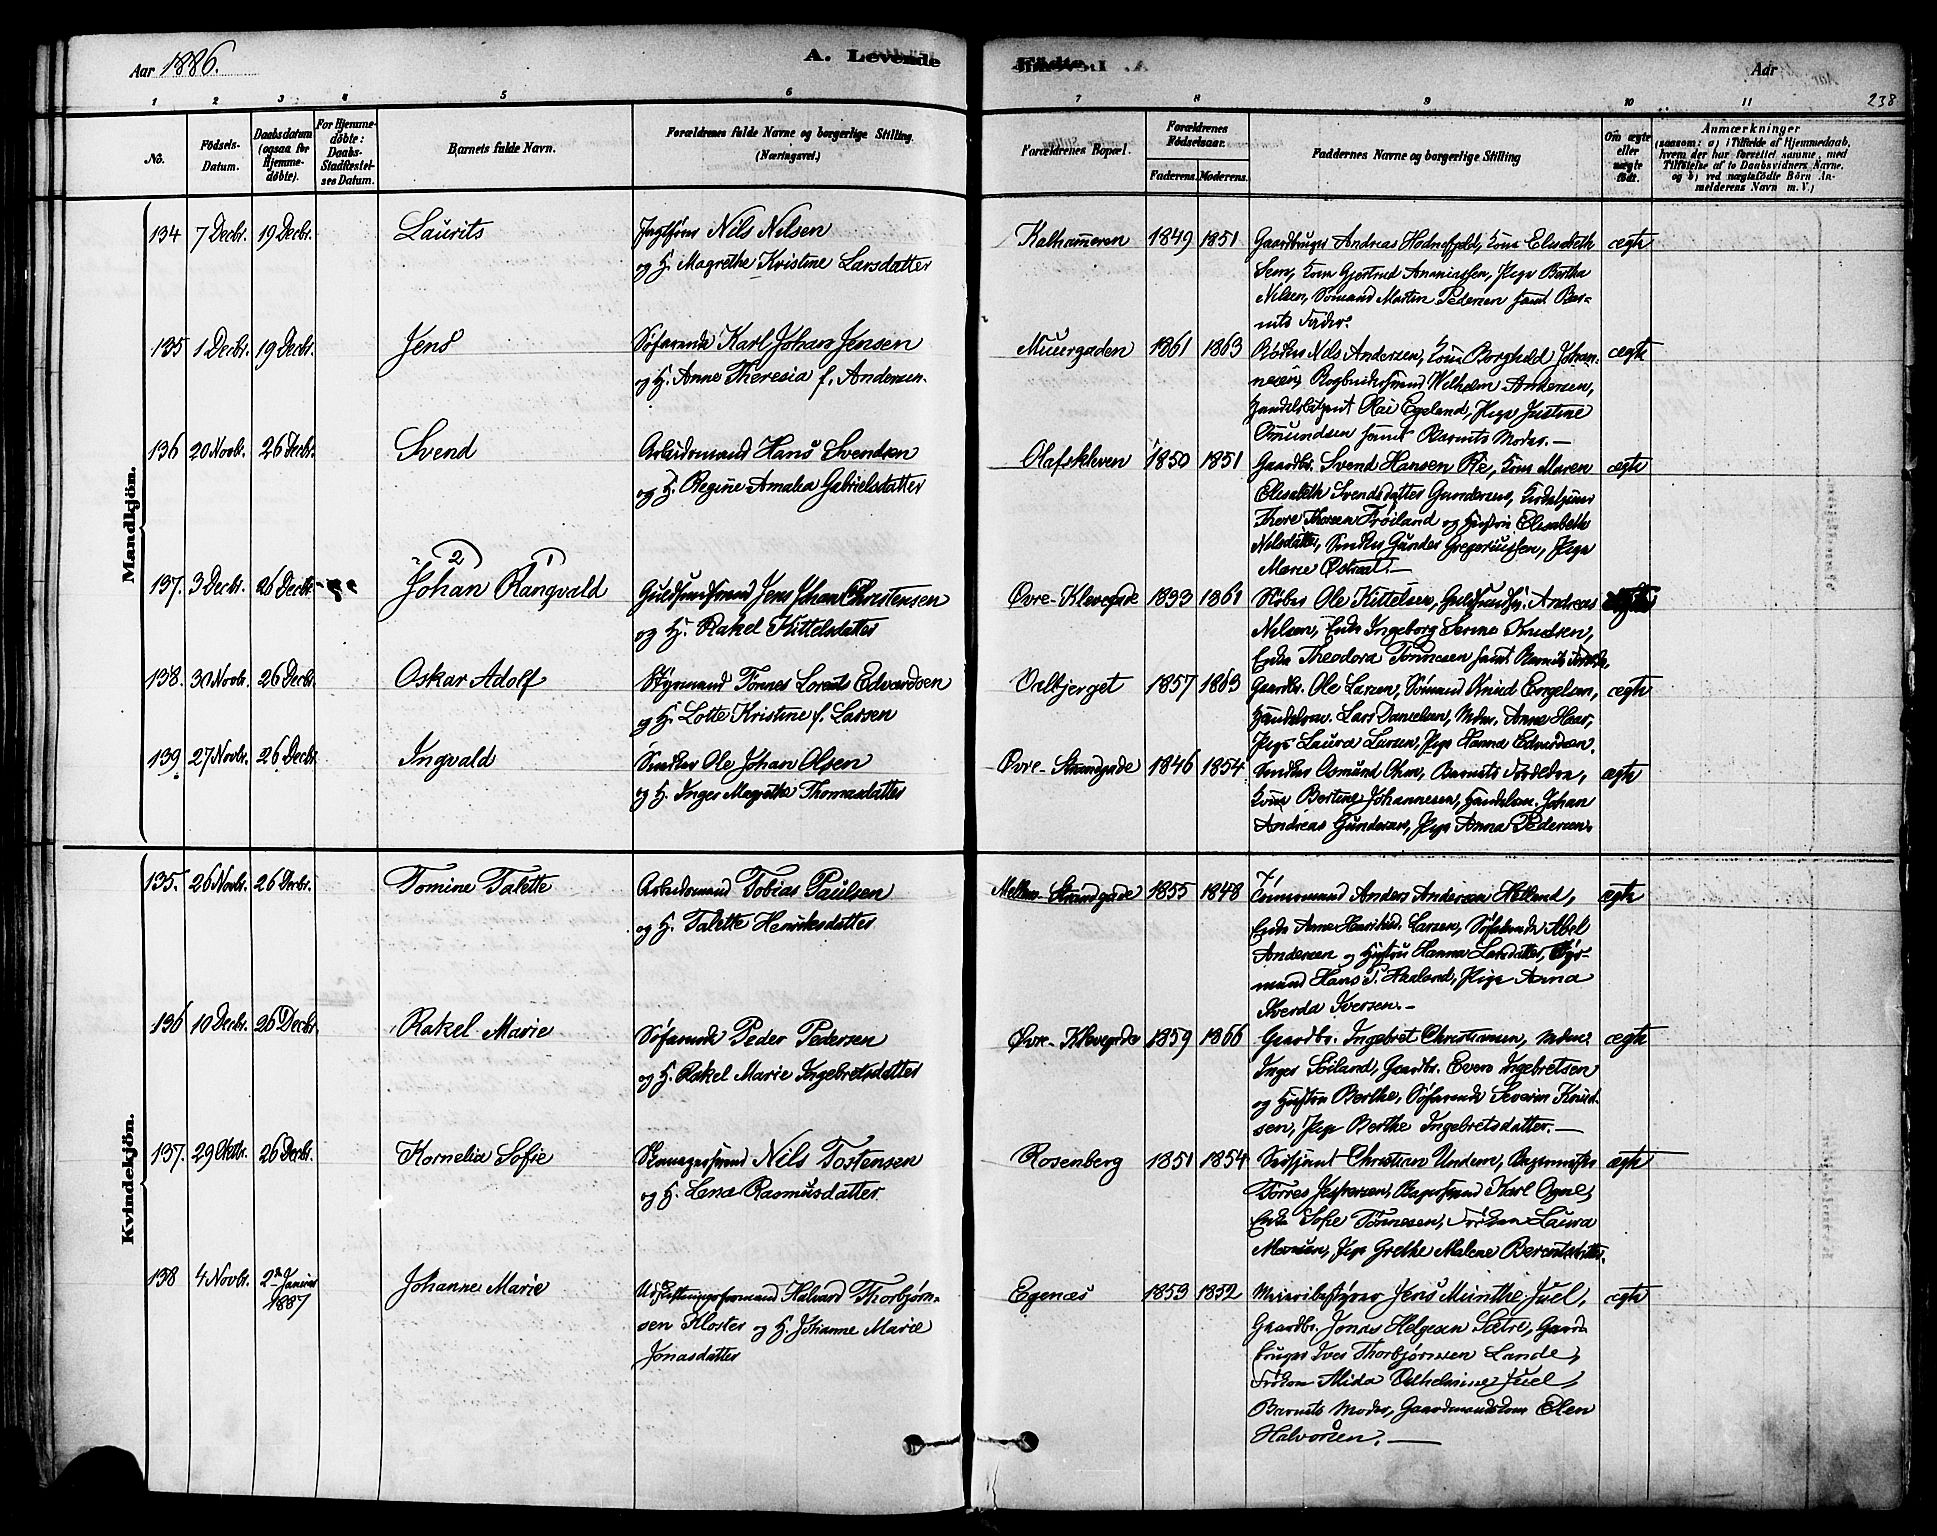 Aar 1886.
A. Levende
Fødte.
Aar
238
1 2 3 4 5 6 7 8 9 10 11
No.
Fødsels-
Datum.
Daabsdatum
(ogsaa for
Hjemme-
døbte).
For Hjemme-
døbte:
Daabs-
Stadfæstel-
ses Datum.
Barnets fulde Navn.
Forældrenes fulde Navne og borgerlige Stilling.
(Næringsvei.)
Forældrenes Bopæl.
Forældrenes
Fødselsaar.
Faderens. Moderens.
Faddernes Navne og borgerlige Stilling
Om ægte
eller
uægte
født.
Anmærkninger
(saasom: a) i Tilfælde af Hjemmedaab,
hvem der har forrettet samme, med
Tilføielse af to Daabsvidners Navne.
og b) ved uægtefødte Børn An-
melderens Navn m. V.)
Mandkjön.
134 7 Decbr. 19 Decbr. Laurits
Nils Nilsen
og H. Magrethe Kristine Larsdatter
Kalhammeren 1849 1851
Gaardbruger Andreas Hodnefjeld, Kone Elisabeth
Sem, Kone Gjertrud Ananiassen, Pige Bertha
Nilsen, Sømand Martin Pedersen samt Bar-
nets Fader.
ægte
135 1 Decbr. 19 Decbr. Jens
Søfarende Karl Johan Jensen
og H. Anne Theresia f. Andersen.
Muurgaden 1861 1863
Bødker Nils Andersen, Kone Borghild Johan-
nesen, Bogbindersvend Wilhelm Andersen,
Egeland, Pige Justine
Osmundsen samt Barnets Moder.—
ægte
136 20 Novbr. 26 Decbr. Svend
Arbeidsmand Hans Svendsen
og H. Regine Amalia Gabrielsdatter
Olafskleven 1850 1851
Gaardbr. Svend Hansen Rie, Kone Maren
Elisabeth Svendsdatter Gundersen,
Thore Thorsen Frøiland og Hustru Elisabeth
Nilsdatter, Snedker Gunder Gregoriussen, Pige
Marie Østraat.—
ægte
2 1
137. 3 Decbr. 26 Decbr. Johan Rangvald
Guldsmedsvend Jens Johan Christensen
og H. Rakel Kittelsdatter
Øvre-Klevegade 1833 1861
Ole Kittelsen, Andreas
Nilsen, Enke Ingeborg Serine Knudsen,
Enke Theodora Tønnesen samt Barnets
138. 30 Novbr. 26 Decbr. Oskar Adolf
Styrmand Tønnes Lorents Edvardsen
og H. Lotte Kristine f. Larsen
Valbjerget 1857 1863
Gaardbr. Ole Larsen, Sømand Knud Engelsen,
Lars Danielsen, Mdm. Anne Haar,
Pige Laura Larsen, Pige Hanna Edvardsen.
ægte
139. 27 Novbr. 26 Decbr. Ingvald
Snedker Ole Johan Olsen
og H. Inger Magrethe Thomasdatter
Øvre-Strandgade 1846 1854
Snedker Osmund Ohm, Barnets
Kone Bertine Johannesen, Johan
Andreas Gundersen, Pige Anna Pedersen.
ægte
Kvindekjön.
135. 26 Novbr. 26 Decbr. Tomine Talette
Arbeidsmand Tobias Paulsen
og H. Talette Henriksdatter
Mellem-Strandgade 1855 1848
Tømmermand Anders Andersen Helland,
Enke Anne Larsen, Søfarende Abel
Andersen og Hustru Hanna Larsdatter, Styr-
mand Hans P. Haaland, Pige Anna
Sverda Iversen.—
ægte
136 10 Decbr. 26 Decbr. Rakel Marie
Søfarende Peder Pedersen
og H. Rakel Marie Ingebretsdatter
Øvre-Klevegade 1859 1866
Gaardbr. Ingebret Christiansen, Mdme
Inger Soiland, Gaardbr. Even Ingebretsen
og Hustru Berthe, Søfarende Severin Knud-
sen, Pige Berthe Ingebretsdatter.—
ægte
137. 29 Oktbr. 26 Decbr. Kornelia Sofie
Nils Tostensen
og H. Lena Rasmusdatter
Rosenberg 1851 1854
Sersjant Christian Undem, Bagermester
Torres Jespersen, Bagersvend Karl Ogne,
Enke Sofie Tønnesen, Frøken Laura
Monsen, Pige Grethe Malene Berentsdatter.
ægte
138 4 Novbr. 2den Januar
1887
Johanne Marie
Halvard Thorbjørn-
sen Kloster og H. Johanne Marie
Jonasdatter
Egenæs 1859 1852
Meieribestyrer Jens Munthe Juel,
Gaardbr. Jonas Helgesen Sætre, Gaard-
bruger Iver Thorbjørnsen Lande,
Frøken Mida Vilhelmine Juel,
Barnets Moder, Gaardmandskone Elen
Halvorsen.—
ægte